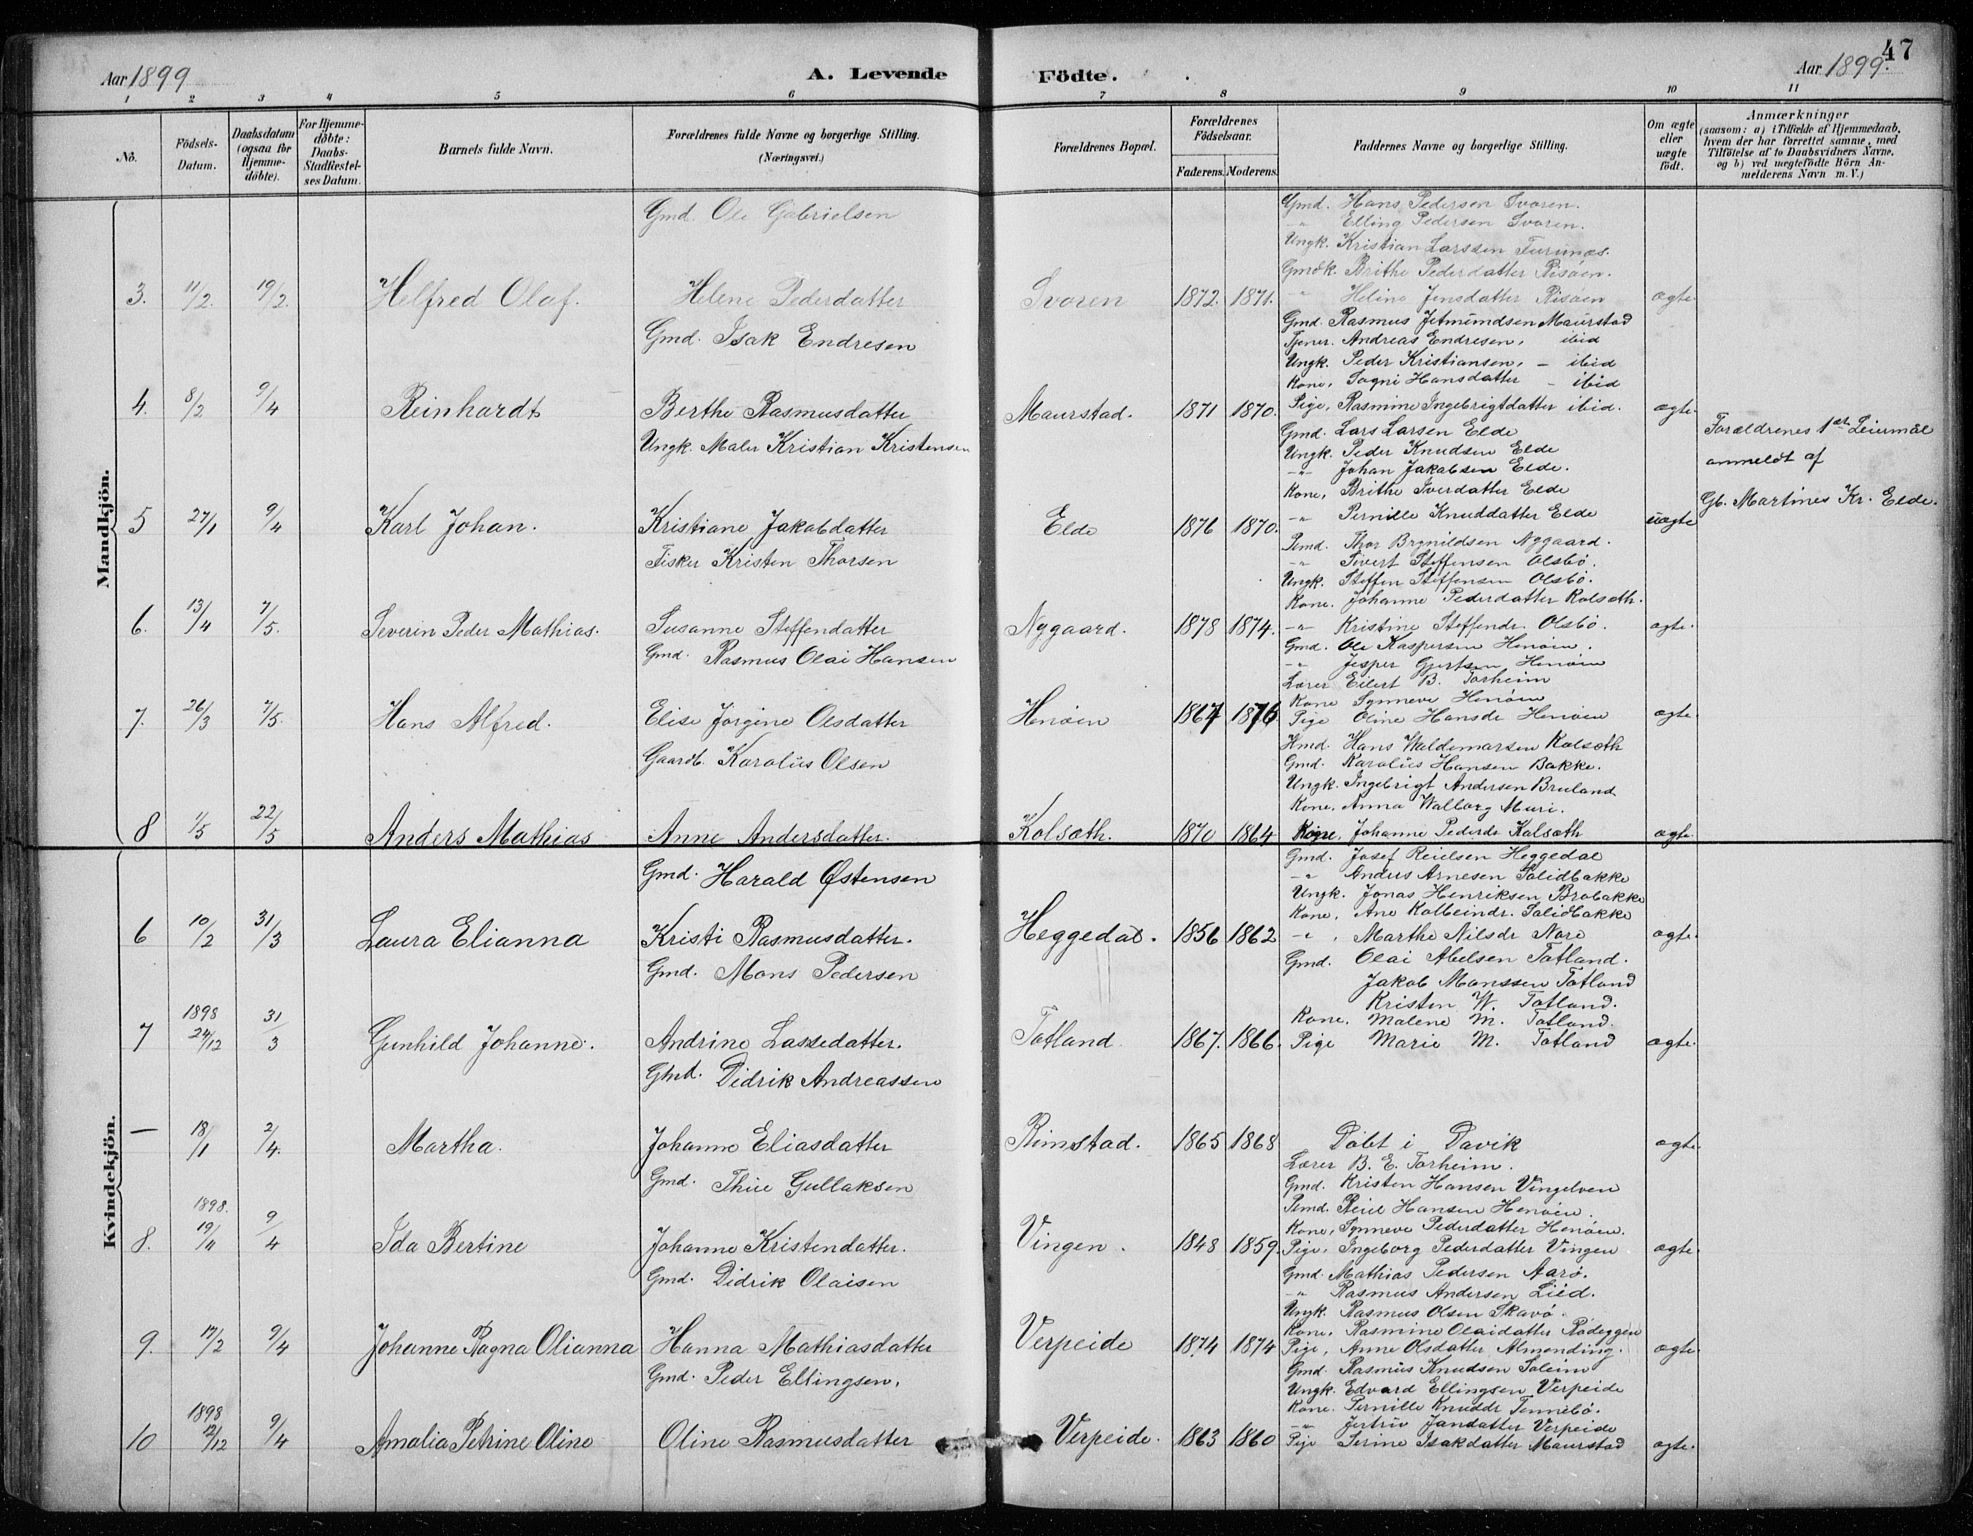 47
Aar 1899
A. Levende Födte.
Aar 1899.
1 2 3 4 5 6 7 8 9 10 11
No.
Födsels-Datum.
Daabsdatum (ogsaa for Hjemme-döbte).
For Hjemme-döbte: Daabs-Stadfæstel-ses Datum.
Barnets fulde Navn.
Forældrenes fulde Navne og borgerlige Stilling. (Næringsvei.)
Forældrenes Bopæl.
Forældrenes Födselsaar.
Faderens. Moderens.
Faddernes Navne og borgerlige Stilling.
Om ægte eller uægte födt.
Anmærkninger (saasom: a) i Tilfælde af Hjemmedaab, hvem der har forrettet samme, med Tilföielse af to Daabsvidners Navne, og b) ved uægtefödte Börn Anmelderens Navn m. V.)
Mandkjön.
Gmd. Ole Gabrielsen
Gmd. Hans Pedersen Svoren.
-"- Elling Pedersen Svoren.
Ungk. Kristian Larssen Furunæs.
Gmdk. Brithe Pederdatter Risöen.
3. 11/2 19/2. Helfred Olaf. Helene Pederdatter Svoren 1872. 1871. -"- Heline Jensdatter Risöen ægte
Gmd. Isak Endresen
Gmd. Rasmus Jetmundsen Maurstad
Tjener. Andreas Endresen, ibid
Ungk. Peder Kristiansen, - ibid
Kone, Sogni Hansdatter - ibid
4. 8/2 9/4 Reinhardt Berthe Rasmusdatter Maurstad. 1871 1870. Pige, Rasmine Ingebrigtdatter ibid. ægte.
Ungk. Maler Kristian Kristensen
Gmd. Lars Larsen Elde
Ungk. Peder Knudsen Elde
-"- Johan Jakobsen Elde.
Kone, Brithe Iverdatter Elde
Forældrenes 1ste Leiermål
anmeldt af
Gb. Martines Kr. Elde.
5 27/1 9/4 Karl Johan. Kristiane Jakobdatter Elde 1876 1870. -"- Pernille Knuddatter Elde uægte
Fisker Kristen Thorsen
Pemd. Thor Brynildsen Nygaard.
-"- Sivert Steffensen Olsbö.
Ungk. Steffen Steffensen Olsbö.
Kone. Johanne Pederdatter Kolseth.
6. 13/4 7/5. Severin Peder Mathias. Susanne Steffendatter Nygaard. 1878 1874. -"- Kristine Steffendr. Olsbö. ægte.
Gmd. Rasmus Olai Hansen
Gmd. Ole Kaspersen Henöen.
-"- Jesper Gjertsen Henöen
Lærer Eilert B. Torheim
Kone Synneve Henöen
7. 26/3 7/5. Hans Alfred. Elise Jorgine Olsdatter Henöen 1867 1876 Pige Oline Hansdr Henöen ægte
Gaardb. Karolüs Olsen
Hmd. Hans Waldemarsen Kolseth
Gmd. Karolüs Hansen Bakke.
Ungk. Ingebrigt Andersen Bruland
Kone, Anna Walborg Muri.
8 1/5 22/5 Anders Mathias Anne Andersdatter. Kolseth. 1870 1864 Kone, Johanne Pederdr Kolseth ægte
Kvindekjön.
Gmd. Harald Østensen
Gmd. Josef Reielsen Heggedal
-"- Anders Arnesen Solidbakke
Ungk. Jonas Henriksen Brobakke
Kone, Ane Kolbeindr. Solidbakke
6 10/2 31/3 Laura Elianna Kristi Rasmusdatter. Heggedal. 1856 1862 -"- , Marthe Nilsdr Nore ægte.
Gmd. Mons Pedersen
Gmd. Olai Abelsen Totland.
Jakob Monssen Totland
Kristen W. Totland.
Kone, Malene M. Totland.
7 1898 24/12 31/3 Gunhild Johanne. Andrine Lassedatter. Totland 1867. 1866. Pige Marie M. Totland ægte.
Gmd. Didrik Andreassen
— 18/1 2/4. Martha. Johanne Eliasdatter Rimstad. 1865 1868 Döbt i Davik ægte.
Gmd. Thue Gullaksen
Lærer B. E. Torheim.
Gmd. Kristen Hansen Vingelven
Pemd. Reiel Hansen Henöen.
Kone, Synneve Pederdatter Henöen.
8. 1898. 19/4 9/4 Ida Bertine Johanne Kristendatter. Vingen. 1848 1859. Pige, Ingeborg Pederdatter Vingen ægte.
Gmd. Didrik Olaisen
Gmd. Mathias Pedersen Aarö.
-"- Rasmus Andersen Lied.
Ungk. Rasmus Olsen Skavö.
Kone, Rasmine Olaidatter Rödeggen
9. 12/2 9/4 Johanne Ragna Olianna Hanna Mathiasdatter Verpeide 1874 1874 Pige, Anne Olsdatter Almending. ægte.
Gmd. Peder Ellingsen,
Gmd. Rasmus Knudsen Soleim
Ungk. Edvard Ellingsen Verpeide
Kone. Pernille Knuddr Tennebö.
-"- Jertrüv Jondatter Verpeide
10 1898 12/12 9/4 Amalia Petrine Oline Oline Rasmusdatter Verpeide. 1863 1860 Pige Serine Isakdatter Maurstad ægte.